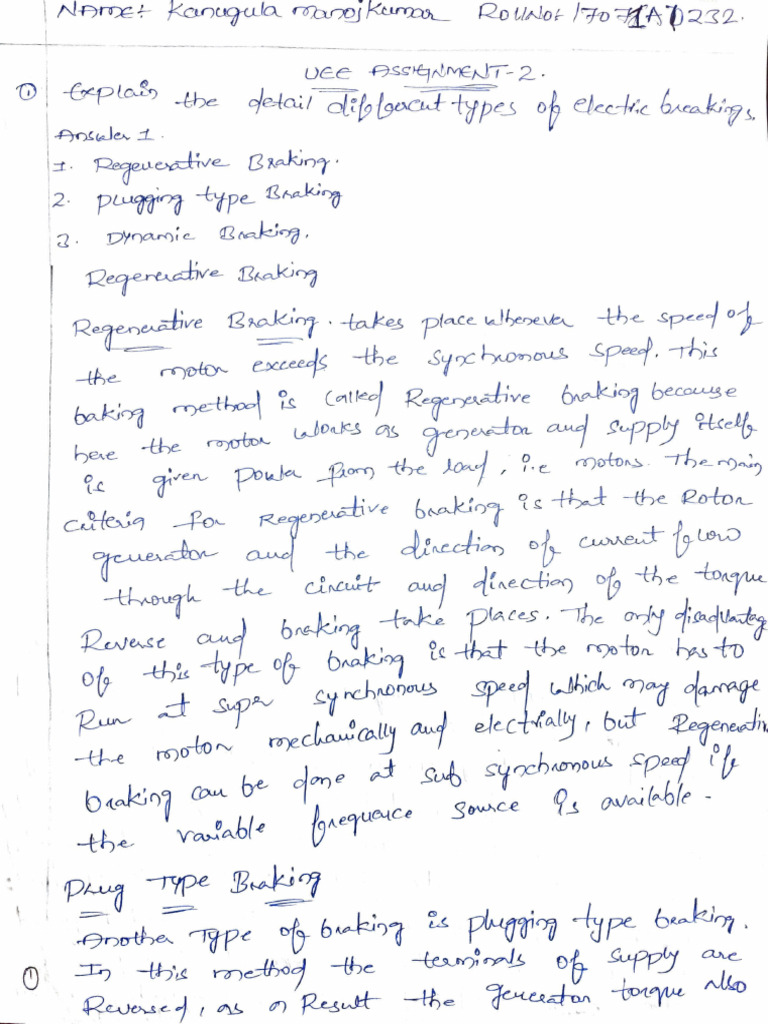 NAME: Kanugula manojkumar ROLLNO: 17071A0232.
UEE ASSIGNMENT-2.
① Explain the detail different types of electric breakings.
Answer 1.
1. Regenerative Braking.
2. plugging type Braking
3. Dynamic Braking.
Regenerative Braking
Regenerative Braking. takes place whenever the speed of
the motor exceeds the synchronous speed. This
baking method is called Regenerative braking because
here the motor works as generator and supply itself
is given power from the load, i.e motors. The main
criteria for Regenerative braking is that the Rotor
generator and the direction of current flow
through the circuit and direction of the torque
Reverse and braking take places. The only disadvantage
of this type of braking is that the motor has to
Run at super synchronous speed which may damage
the motor mechanically and electrially, but Regenerativ
braking can be done at sub synchronous speed if
the variable frequence source is available.
Plug TYPE Braking
Another Type of braking is plugging type beaking.
In this method the terminals of supply are
① Reversed, as a Result the generator torque also